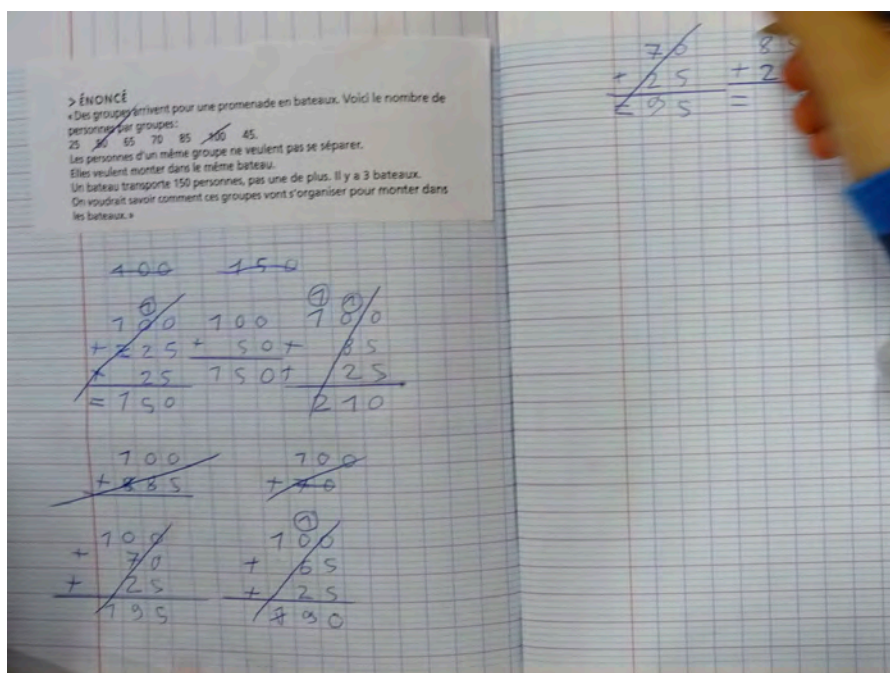 > ÉNONCÉ
« Des groupes arrivent pour une promenade en bateaux. Voici le nombre de
personnes par groupes :
25 50 65 70 85 100 45.
Les personnes d'un même groupe ne veulent pas se séparer.
Elles veulent monter dans le même bateau.
Un bateau transporte 150 personnes, pas une de plus. Il y a 3 bateaux.
On voudrait savoir comment ces groupes vont s'organiser pour monter dans
les bateaux. »
100 150
1
100
+ 25
+ 25
= 150
100
+ 50
150
1 1
100
+ 85
+ 25
210
100
+ 85
100
+ 70
100
+ 70
+ 25
195
1
100
+ 65
+ 25
190
70
+ 25
= 95
8
+ 2
=